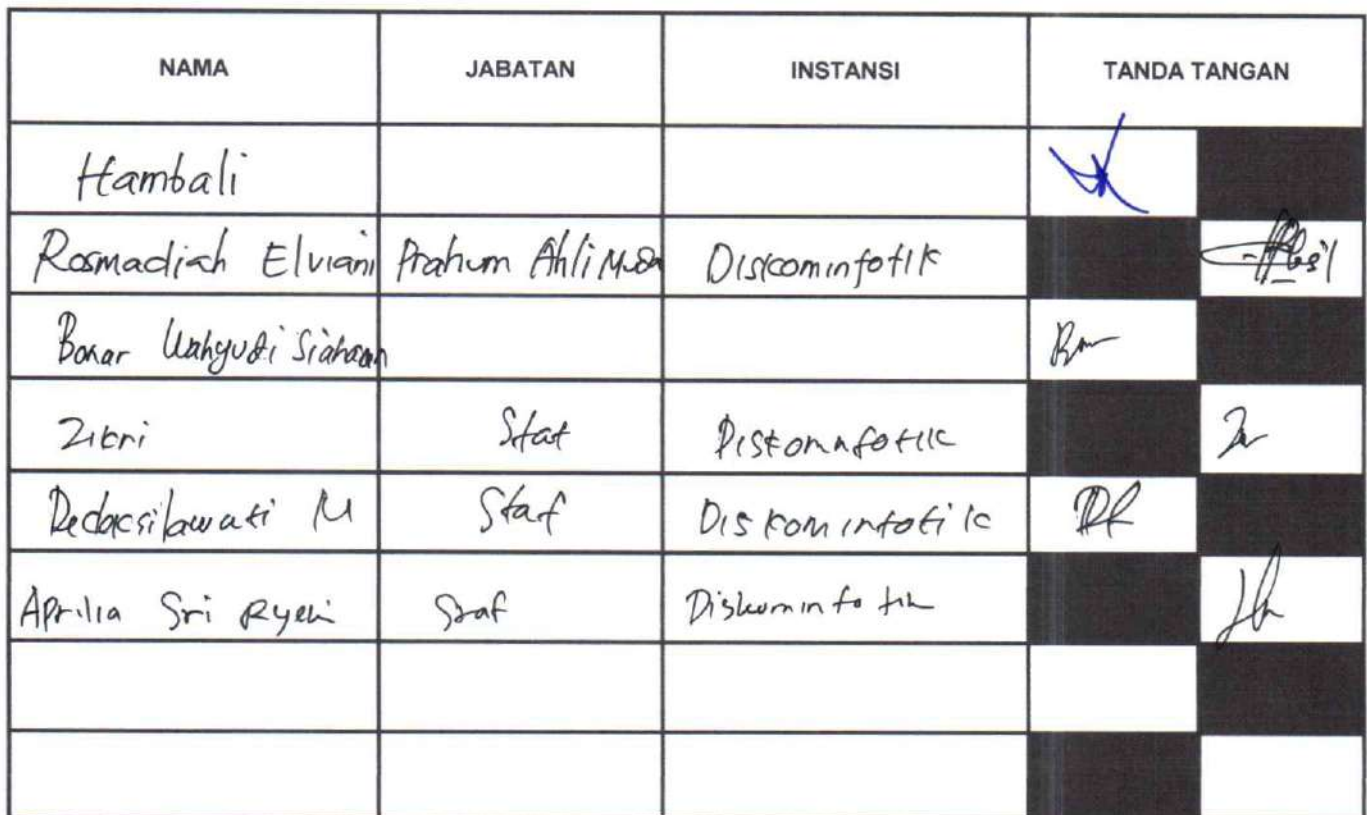 NAMA JABATAN INSTANSI TANDA TANGAN
Hambali
Rosmadiah Elviani Prahum Ahli Muda Diskominfotik
Bonar Wahyudi Siahaan
Zikri Staf Diskominfotik
Staf Diskominfotik
Aprilia Sri Staf Diskominfotik